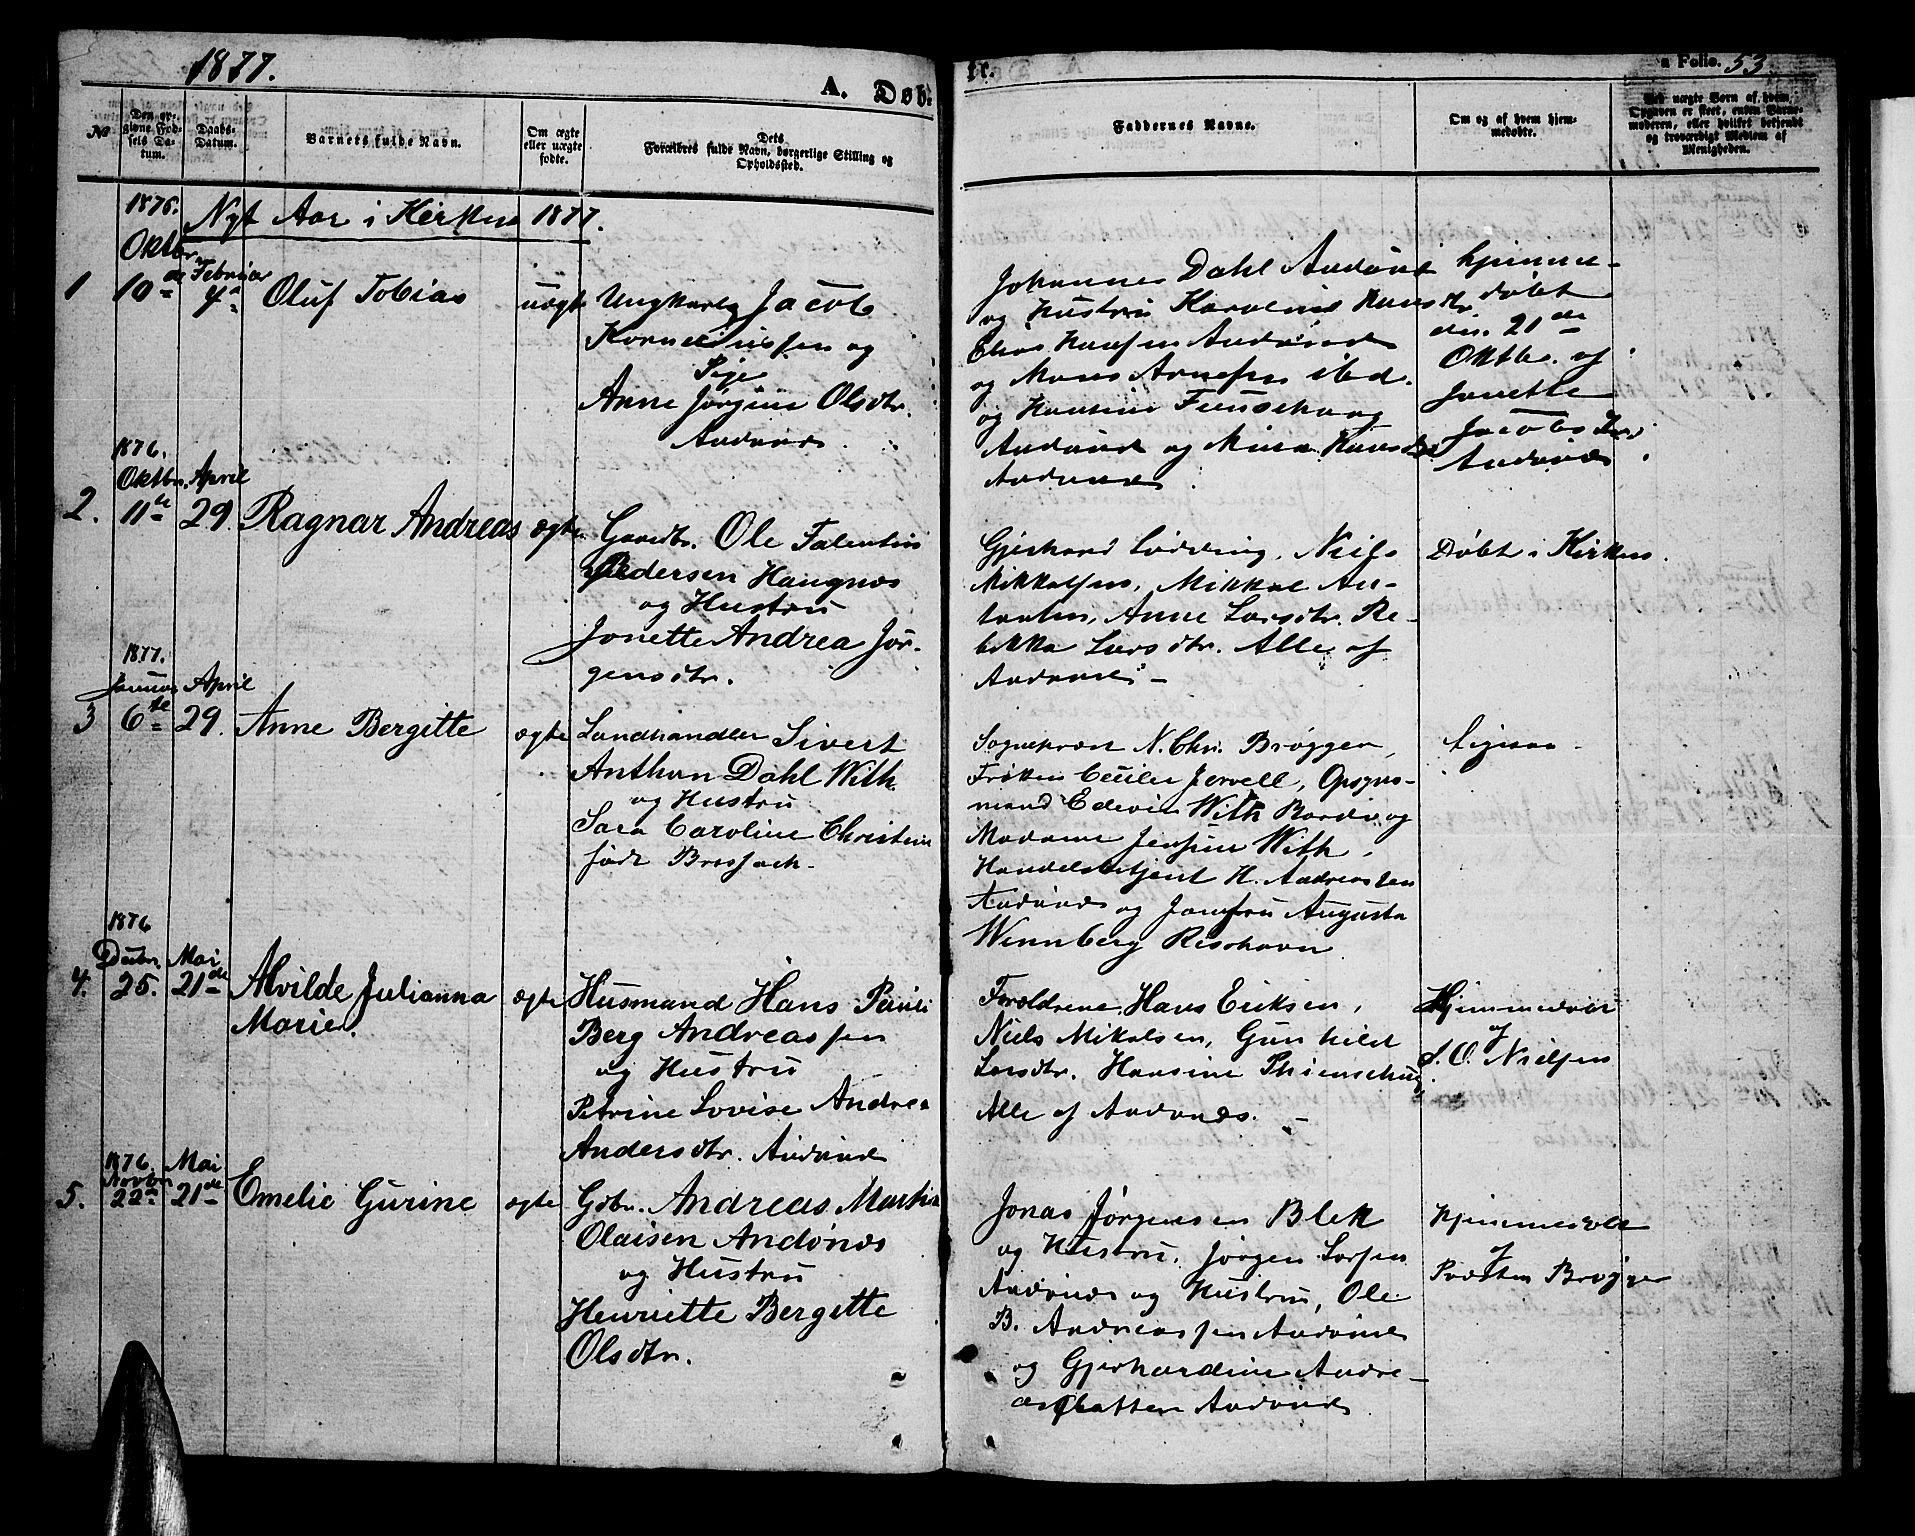 1877.
A. Døb-
te.
a Folio. 53
No
Den opgivne Fødsels Datum.
Daabs-Datum.
Barnets fulde Navn.
Om ægte eller uægte fødte.
Dets Forældres fulde Navn, borgerlige Stilling og Opholdssted.
Faddernes Navne.
Om og af hvem hjemmedøbte.
Ved uægte Børn af hvem Opgaven er skeet, enten Barnemoderen, eller hvilket bekjendt og troværdigt Medlem af Menigheden.
Nyt Aar i Kirken 1877.
1 1876. Oktbr. 10de
Februar 4de
Oluf Tobias
uægte
Ungkarl Jacob
Korneliussen og
Pige
Anne Jørgine Olsdtr.
Andønes
Johannes Dahl Andønes
og Hustru Karoline Hansdtr
Elias Hansen Andønes
og Mons Arnesen ibd.
og Hansine
Andønes og Mina Hansdtr
Andønes.
hjemme-
døbt
den 21de
Oktbr. af
Jonette
Jacobsdtr.
Andønes
2. 1876. Oktbr. 11te
April 29.
Ragnar Andreas
ægte
Gaardbr. Ole Falentin
Pedersen Haugnæs
og Hustru
Jonette Andrea Jør-
gensdtr.
Gjerhard Lødding, Niels
Mikkelsen, Mikkal An-
tonsen, Anne Larsdtr. Re-
bekka Larsdtr. Alle af
Andønes -
Døbt i Kirken.
3 1877. Januar 6te
April 29.
Anne Bergitte
ægte
Landhandler Sivert
Anthon Dahl With
og Hustru
Sara Caroline Christine
født
Sogneprest N. Chr. Brøgger,
Frøken Cecilie Jervell, Opsyns-
mand Edevin With og
Madame Jensine With,
Handelsbetjent H. Andreassen
Andønes og Jomfru Augusta
Wennberg Risøhavn
Ligesaa -
4. 1876 Decbr. 25.
Mai 21de
Alvilde Julianna
Marie.
ægte
Husmand Hans Pauli
Berg Andreassen
og Hustru
Petrine Lovise Andrea
Andersdtr. Andønes
Forældrene, Hans Eriksen,
Niels Mikalsen, Gunhild
Larsdtr. Hansine
Alle af Andønes. -
Hjemmedøbt
af
S. O. Nielsen
5. 1876. Novbr 22de
Mai 21de
Emelie Gurine
ægte
Gdbr. Andreas Martin
Olaisen Andønes
og Hustru
Henriette Bergitte
Olsdtr.
Jonas Jørgensen Blek
og Hustru, Jørgen Larsen
Andønes og Hustru, Ole
B. Andreassen Andønes
og Gjerhardine Andre-
asdatter Andønes
Hjemmedøbt
af
Presten Brøgger